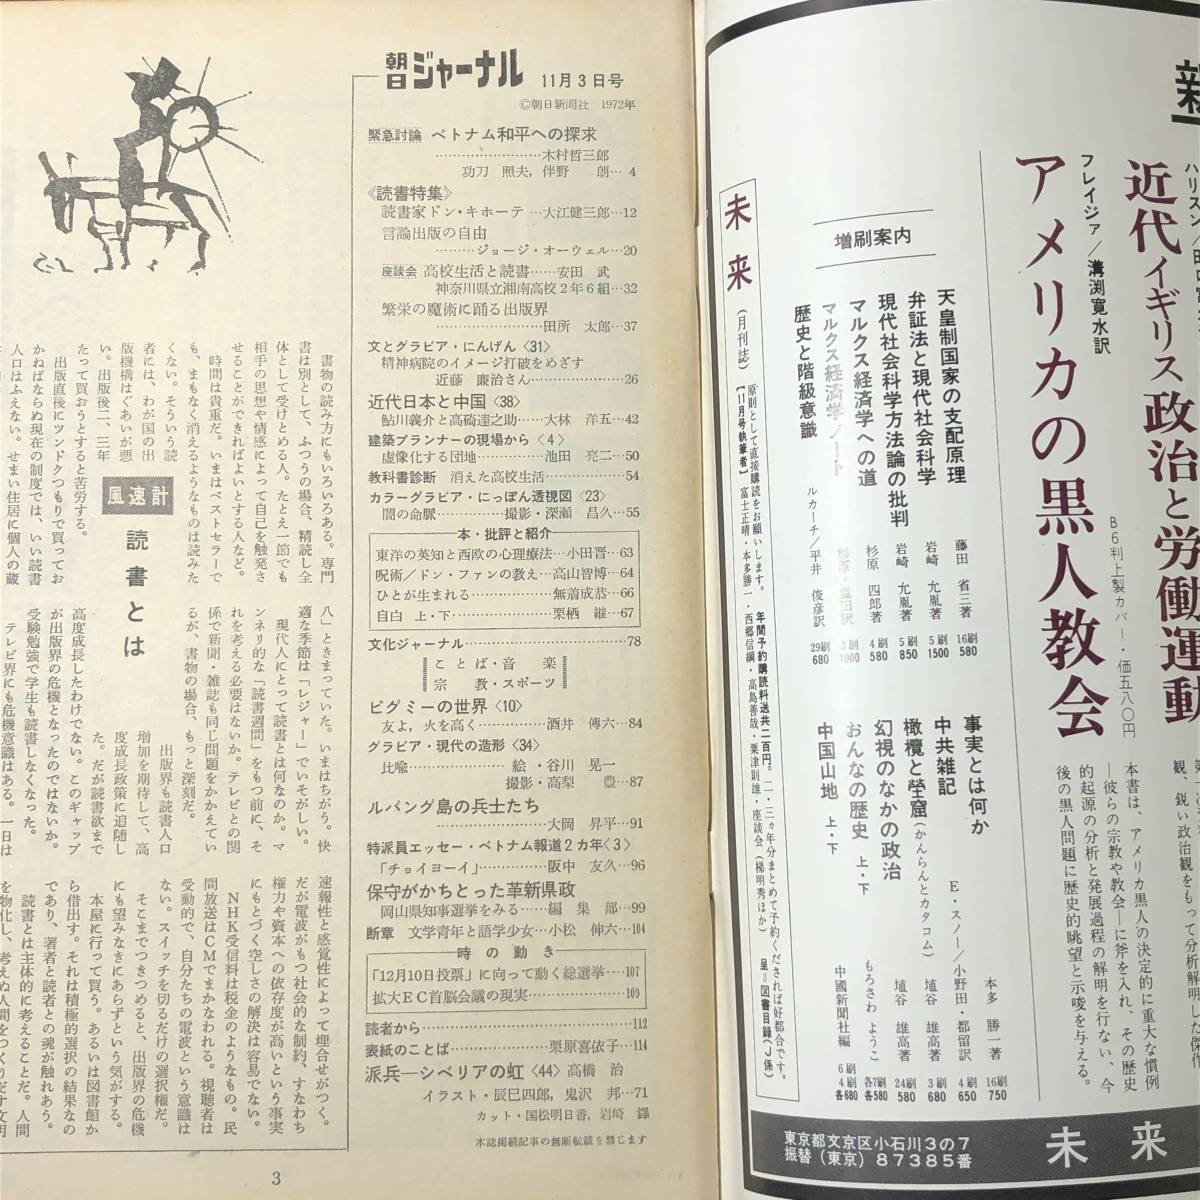 朝日ジャーナル 11月3日号
©朝日新聞社 1972年
緊急討論 ベトナム和平への探求
……………………木村哲三郎
功刀 照夫，伴野 朗…4
《読書特集》
読書家ドン・キホーテ…大江健三郎…12
言論出版の自由
…………ジョージ・オーウェル…20
座談会 高校生活と読書……安田 武
神奈川県立湘南高校2年6組…32
繁栄の魔術に踊る出版界
……………………田所 太郎…37
文とグラビア・にんげん〈31〉
精神病院のイメージ打破をめざす
近藤 廉治さん……………26
近代日本と中国〈38〉
鮎川義介と高碕達之助……大林 洋五…42
建築プランナーの現場から〈4〉
虚像化する団地……………池田 亮二…50
教科書診断 消えた高校生活……………54
カラーグラビア・にっぽん透視図〈23〉
闇の命脈……………撮影・深瀬 昌久…55
本・批評と紹介
東洋の英知と西欧の心理療法…小田晋…63
呪術／ドン・ファンの教え…高山智博…64
ひとが生まれる……………無着成恭…66
自白 上・下………………栗栖 継…67
文化ジャーナル……………………78
ことば・音楽
宗教・スポーツ
ピグミーの世界〈10〉
友よ，火を高く……………酒井 傳六…84
グラビア・現代の造形〈34〉
比喩……………絵・谷川 晃一
撮影・高梨 豊…87
ルバング島の兵士たち
……………………大岡 昇平…91
特派員エッセー・ベトナム報道2カ年〈3〉
「チョイヨーイ」…………阪中 友久…96
保守がかちとった革新県政
岡山県知事選挙をみる……編集部…99
断章 文学青年と語学少女…小松 伸六…104
時の動き
「12月10日投票」に向って動く総選挙…107
拡大EC首脳会議の現実………………109
読者から……………………………112
表紙のことば……………栗原喜依子…114
派兵―シベリアの虹〈44〉高橋 治
イラスト・辰巳四郎，鬼沢 邦…71
カット・国松明日香，岩崎 鐸
本誌掲載記事の無断転載を禁じます
風速計
読書とは
書物の読み方にもいろいろある。専門
書は別として、ふつうの場合、精読し全
体として受けとめる人。たとえ一節でも
相手の思想や情感によって自己を触発さ
せることができればよいとする人など。
時間は貴重だ。いまはベストセラーで
も、まもなく消えるようなものは読みた
くない。そういう読
者には、わが国の出
版機構はぐあいが悪
い。出版後二、三年
たって買おうとすると苦労する。
出版直後にツンドクつもりで買ってお
かねばならぬ現在の制度では、いい読書
人口はふえない。せまい住居に個人の蔵
八」ときまっていた。いまはちがう。快
適な季節は「レジャー」でいそがしい。
現代人にとって読書とは何なのか。マ
ンネリ的な「読書週間」をもつ前に、そ
れを考える必要はないか。テレビとの関
係で新聞・雑誌も同じ問題をかかえてい
るが、書物の場合、もっと深刻だ。
出版界も読書人口
増加を期待して、高
度成長政策に追随し
た。だが読書欲まで
高度成長したわけでない。このギャップ
が出版界の危機となったのではないか。
受験勉強で学生も読書しなくなった。
テレビ界にも危機意識はある。一日は
速報性と感覚性によって埋合せがつく。
だが電波がもつ社会的な制約、すなわち
権力や資本への依存度が高いという事実
にもとづく空しさの解決は容易でない。
NHK受信料は税金のようなもの。民
間放送はCMでまかなわれる。視聴者は
受動的で、自分たちの電波という意識は
ない。スイッチを切るだけの選択権だ。
そこまでつきつめると、出版界の危機
にも望みなきにあらずという気がする。
本屋に行って買う。あるいは図書館か
ら借出す。それは積極的選択の結果なの
であり、著者と読者との魂が触れあう。
読書とは主体的に考えることだ。人間
を物化し、考えぬ人間をつくりだす文明
3
新
近代イギリス政治と労働運動
フレイジァ／溝渕寛水訳
アメリカの黒人教会
B6判上製カバー・価五八〇円
本書は、アメリカ黒人の決定的に重大な慣例
―彼らの宗教や教会―に斧を入れ、その歴史
的起源の分析と発展過程の解明を行ない、今
後の黒人問題に歴史的眺望と示唆を与える。
観、鋭い政治観をもって分析解明した傑作
増刷案内
天皇制国家の支配原理 藤田 省三著 16刷 580
弁証法と現代社会科学 岩崎 允胤著 5刷 1500
現代社会科学方法論の批判 岩崎 允胤著 5刷 850
マルクス経済学への道 杉原 四郎著 4刷 580
マルクス経済学ノート 1000
歴史と階級意識 ルカーチ／平井 俊彦訳 29刷 680
事実とは何か 本多 勝一著 16刷 750
中共雑記 E・スノー／小野田・都留訳 4刷 650
橄欖と塋窟（かんらんとカタコム） 埴谷 雄高著 3刷 680
幻視のなかの政治 埴谷 雄高著 24刷 580
おんなの歴史 上・下 もろさわ ようこ 各7刷 各580
中国山地 上・下 中國新聞社編 6刷 4刷 各680
未来（月刊誌）
原則として直接購読をお願いします。 年間予約購読料送共二百円。二・三ヵ年分まとめて予約くだされば好都合です。
【11月号執筆者】富士正晴・本多勝一・西郷信綱・高島善哉・粟津則雄・座談会（梯明秀ほか） 呈＝図書目録（J係）
東京都文京区小石川3の7
振替（東京）87385番
未来